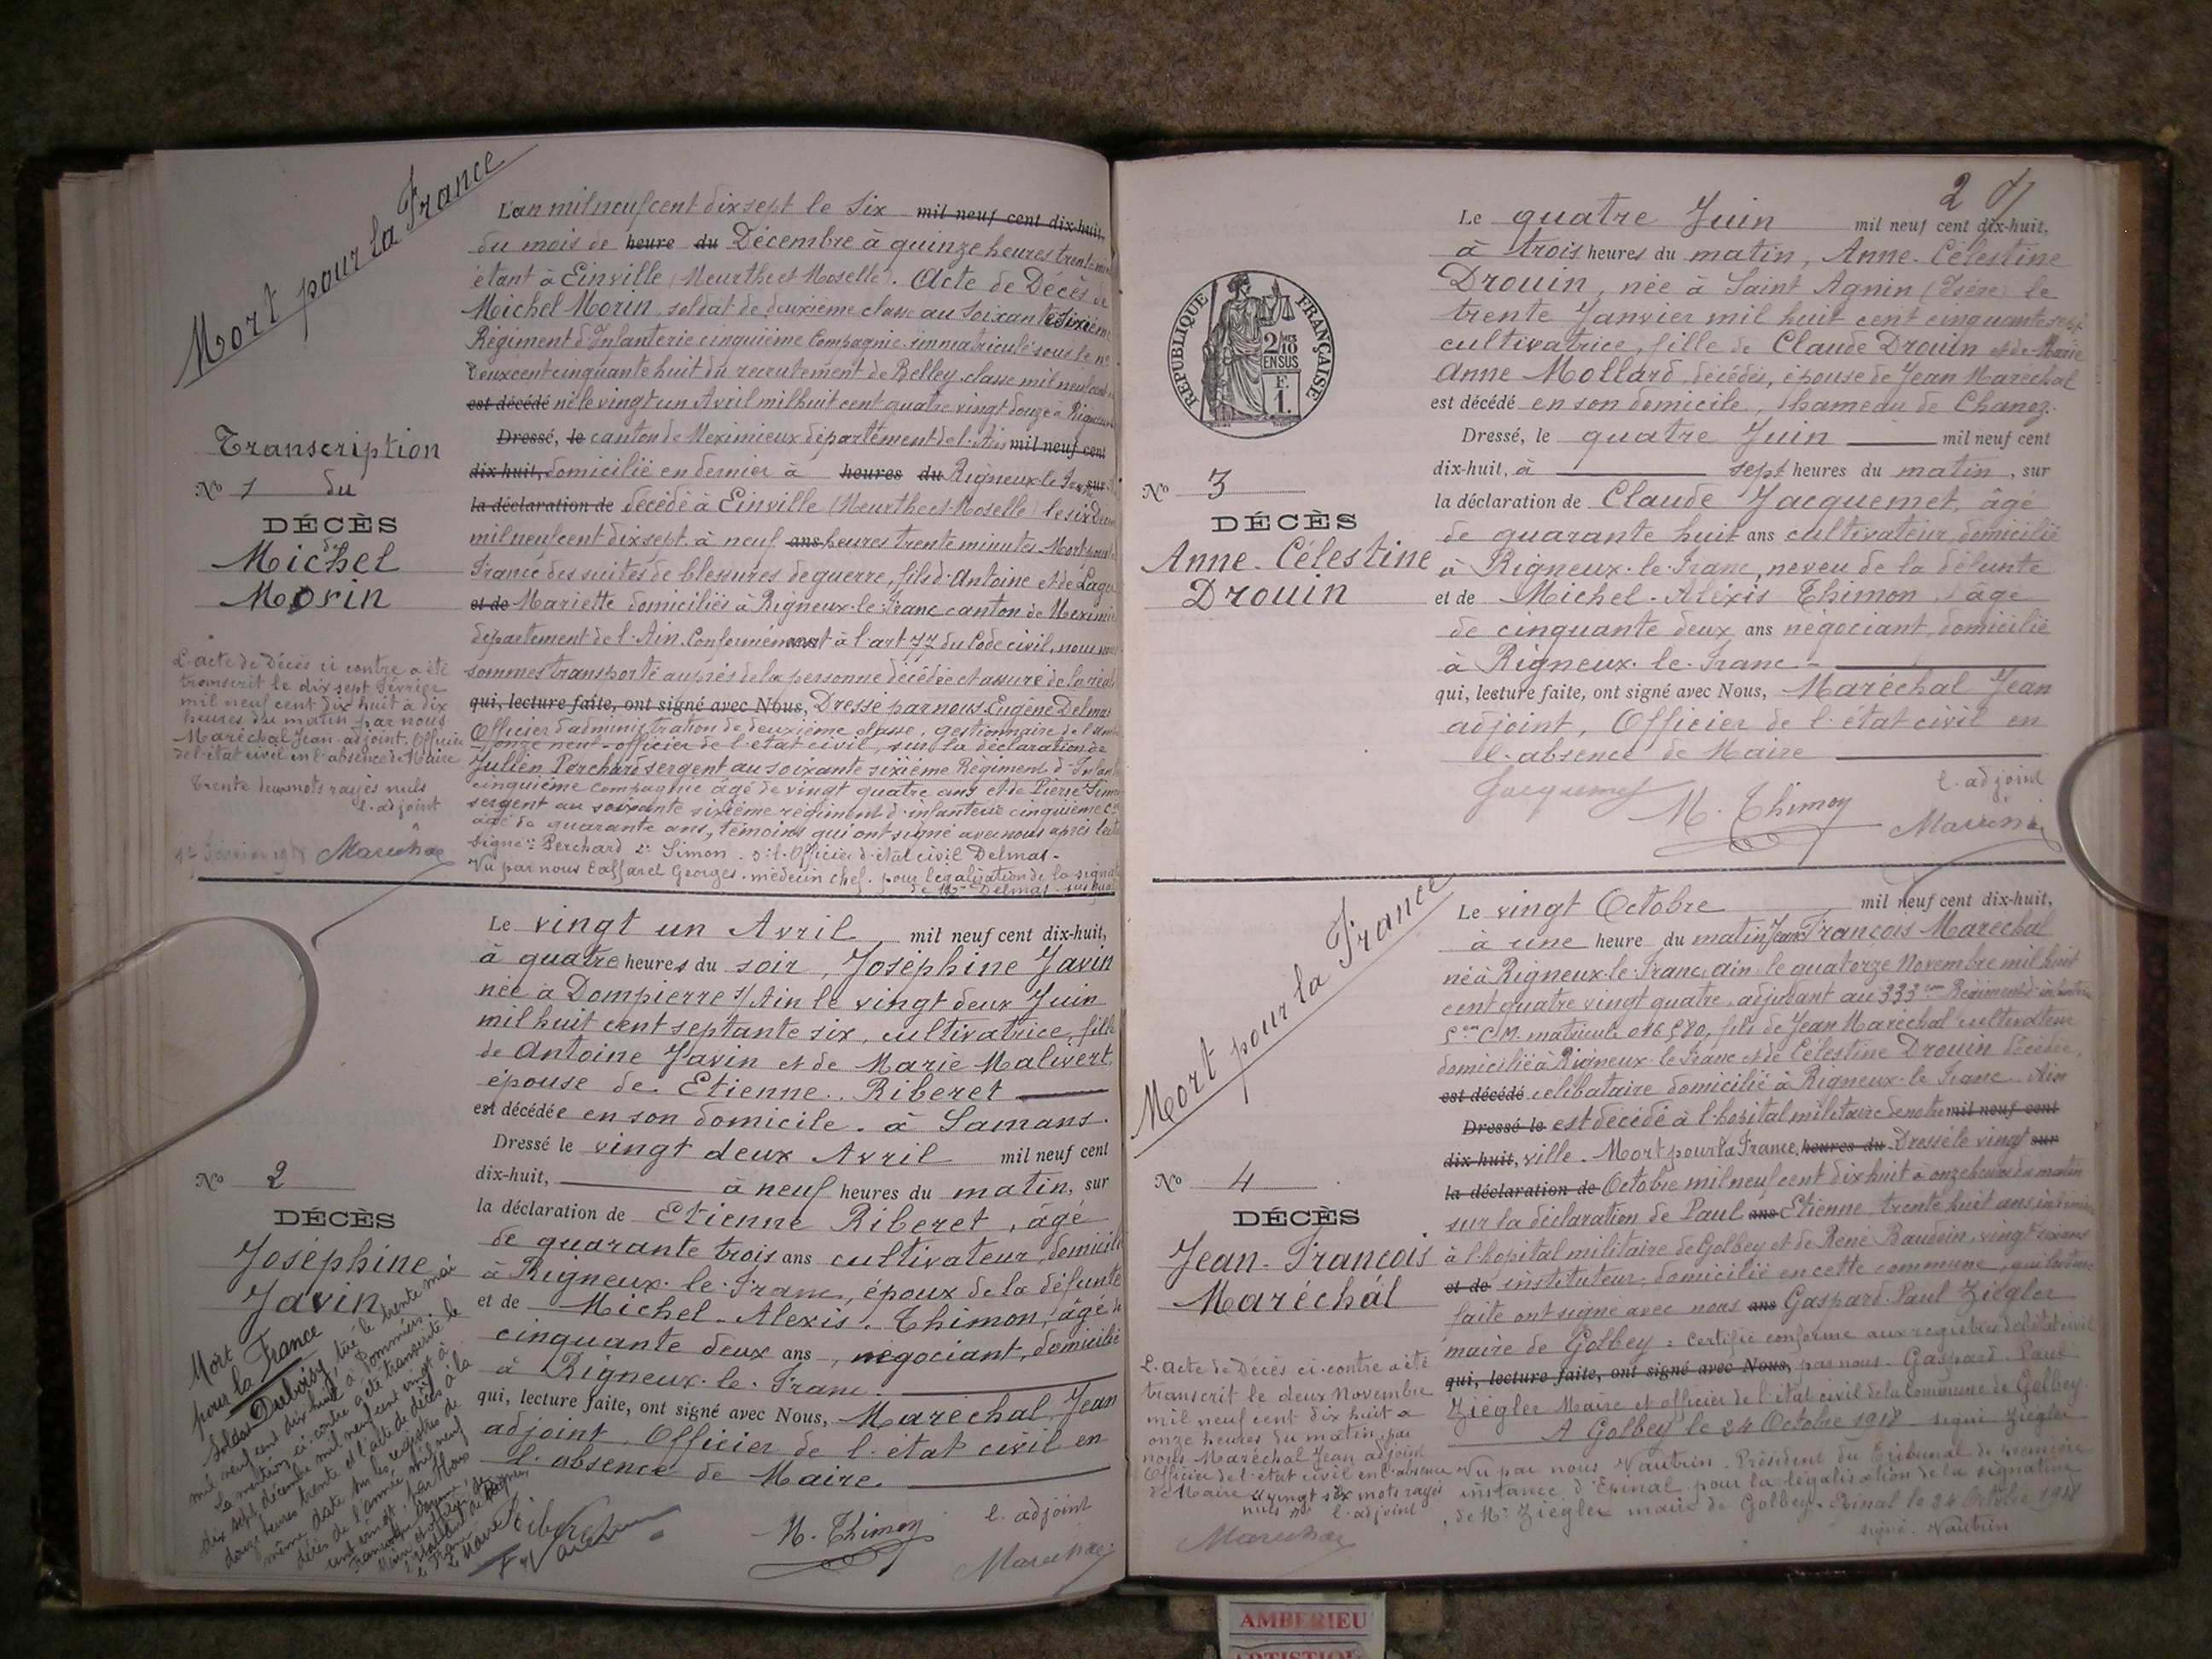 Mort pour la France
Transcription
No 1 du
DÉCÈS
de
Michel
Morin
L'acte de Décès ci contre a été
transcrit le dix sept Février
mil neuf cent dix huit à dix
heures du matin par nous
Maréchal Jean adjoint. Officier
de l'état civil en l'absence de Maire
Trente deux mots rayés nuls
l'adjoint
Marechal
L'an mil neuf cent dix sept le Six mil neuf cent dix-huit,
du mois de heure du Décembre à quinze heures trente
étant à Einville (Meurthe et Moselle). Acte de Décès de
Michel Morin soldat de deuxième classe au Soixante Sixième
Régiment d'Infanterie cinquième Compagnie immatriculé sous le no
Deux cent cinquante huit du recrutement de Belley classe mil neuf cent
est décédé né le vingt un Avril mil huit cent quatre vingt douze à
Dressé, le canton de Meximieux département de l'Ain mil neuf cent
dix-huit, domicilié en dernier à heures du Rigneux le sur
la déclaration de décédé à Einville (Meurthe et Moselle) le six
mil neuf cent dix sept à neuf ans heures trente minutes. Mort pour la
France des suites de blessures de guerre, fils d'Antoine et de
et de Mariette domiciliés à Rigneux-le-Franc canton de
département de l'Ain. Conformément à l'art 77 du Code civil, nous
sommes transporté auprès de la personne décédée et assuré de la
qui, lecture faite, ont signé avec Nous, Dressé par nous Eugène Delmas
Officier d'administration de deuxième classe, gestionnaire de
onze neuf - officier de l'état civil, sur la déclaration de
Julien Perchard sergent au soixante sixième Régiment d'
cinquième compagnie âgé de vingt quatre ans et de Pierre
sergent au soixante sixième régiment d'infanterie cinquième
âgé de quarante ans, témoins qui ont signé avec nous après
Signé: Perchard 2: Simon. 3: l'Officier d'état civil Delmas.
Vu par nous Caffarel Georges, médecin chef, pour légalisation de la
de Mr Delmas
No 2
DÉCÈS
Joséphine
Javin
Mort
pour la France
Soldat Duboisy, tué le trente mai
mil neuf cent dix huit à Pommiers.
La mention ci-contre a été transcrite le
dix sept décembre mil neuf cent vingt à
douze heures trente et l'acte de décès à la
même date sur les registres de
décès de l'année mil neuf
cent vingt, par Nous
Le vingt un Avril mil neuf cent dix-huit,
à quatre heures du soir, Joséphine Javin
née à Dompierre s/ Ain le vingt deux Juin
mil huit cent septante six, cultivatrice, fille
de Antoine Javin et de Marie Malivert,
épouse de Etienne Riberet
est décédée en son domicile à Samans.
Dressé le vingt deux Avril mil neuf cent
dix-huit, à neuf heures du matin, sur
la déclaration de Etienne Riberet, âgé
de quarante trois ans cultivateur, domicilié
à Rigneux-le-Franc, époux de la défunte
et de Michel-Alexis Thimon, âgé de
cinquante deux ans, négociant, domicilié
à Rigneux-le-Franc.
qui, lecture faite, ont signé avec Nous, Maréchal Jean
adjoint, Officier de l'état civil en
l'absence de Maire.
Riberet
M. Thimon
l'adjoint
Marechal
2
RÉPUBLIQUE FRANÇAISE
2/10
EN SUS
F.
1.
No 3
DÉCÈS
Anne-Célestine
Drouin
Le quatre Juin mil neuf cent dix-huit,
à trois heures du matin, Anne-Célestine
Drouin, née à Saint Agnin (Isère) le
trente Janvier mil huit cent cinquante sept
cultivatrice, fille de Claude Drouin et de Marie
Anne Mollard, décédés, épouse de Jean Maréchal
est décédé en son domicile, hameau de Chanoz.
Dressé, le quatre Juin mil neuf cent
dix-huit, à sept heures du matin, sur
la déclaration de Claude Jacquemet, âgé
de quarante huit ans cultivateur, domicilié
à Rigneux-le-Franc, neveu de la défunte
et de Michel-Alexis Thimon, âgé
de cinquante deux ans négociant, domicilié
à Rigneux-le-Franc
qui, lecture faite, ont signé avec Nous, Maréchal Jean
adjoint, Officier de l'état civil en
l'absence de Maire
Jacquemet
M. Thimon
l'adjoint
Mort pour la France
No 4
DÉCÈS
Jean-François
Maréchal
L'acte de Décès ci-contre a été
transcrit le deux Novembre
mil neuf cent dix huit à
onze heures du matin, par
nous Maréchal Jean adjoint
Officier de l'état civil en l'absence
de Maire vingt six mots rayés
nuls l'adjoint
Marechal
Le vingt Octobre mil neuf cent dix-huit,
à une heure du matin Jean François Maréchal
né à Rigneux-le-Franc, Ain le quatorze Novembre mil huit
cent quatre vingt quatre, adjudant au 333eme Régiment d'infanterie
5em C.M. matricule 016580, fils de Jean Maréchal cultivateur
domicilié à Rigneux-le-Franc et de Célestine Drouin décédée,
est décédé célibataire domicilié à Rigneux-le-Franc Ain
Dressé le est décédé à l'hôpital militaire de notre mil neuf cent
dix-huit, ville. Mort pour la France, heures du Dressé le vingt sur
la déclaration de Octobre mil neuf cent dix huit à onze heures du matin
sur la déclaration de Paul ans Etienne trente huit ans
à l'hôpital militaire de Golbey et de René Baudoin, vingt six ans
et de instituteur, domicilié en cette commune, qui lecture
faite ont signé avec nous ans Gaspard-Paul Ziégler
maire de Golbey: Certifié conforme aux registres de l'état civil
qui, lecture faite, ont signé avec Nous, par nous Gaspard-Paul
Ziégler Maire et officier de l'état civil de la commune de Golbey.
A Golbey le 24 Octobre 1918 signé Ziégler
Vu par nous Vautrin. Président du Tribunal de première
instance d'Epinal pour la légalisation de la signature
de Mr Ziégler maire de Golbey. Epinal le 24 Octobre 1918
signé Vautrin
AMBERIEU